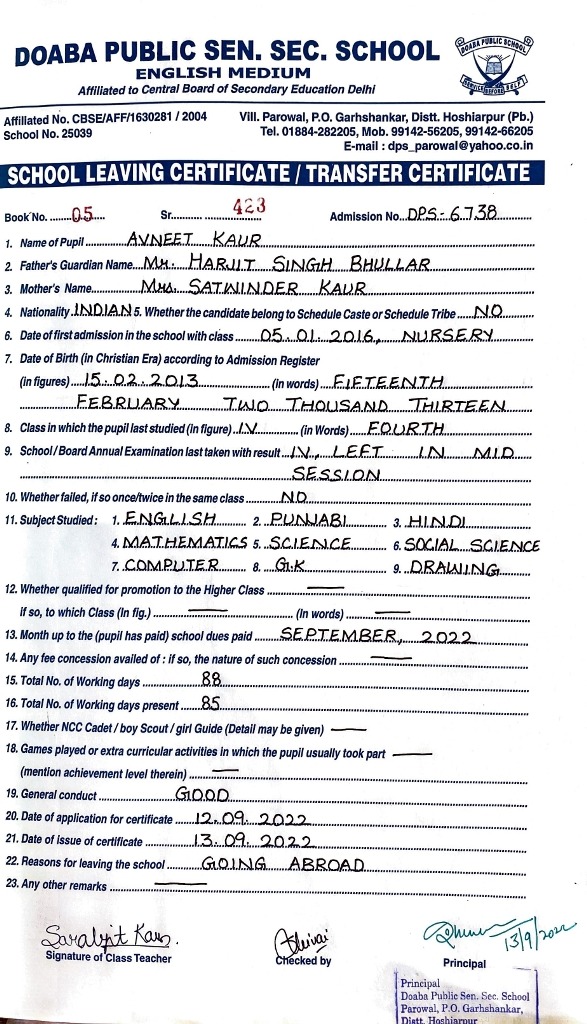 DOABA PUBLIC SEN. SEC. SCHOOL
ENGLISH MEDIUM
Affiliated to Central Board of Secondary Education Delhi
DOABA PUBLIC SCHOOL
SERVICE BEFORE SELF
Affiliated No. CBSE/AFF/1630281 / 2004
School No. 25039
Vill. Parowal, P.O. Garhshankar, Distt. Hoshiarpur (Pb.)
Tel. 01884-282205, Mob. 99142-56205, 99142-66205
E-mail : dps_parowal@yahoo.co.in
SCHOOL LEAVING CERTIFICATE / TRANSFER CERTIFICATE
Book No. 05 Sr. 423 Admission No. DPS-6738
1. Name of Pupil AVNEET KAUR
2. Father's Guardian Name Mr. HARJIT SINGH BHULLAR
3. Mother's Name Mrs. SATWINDER KAUR
4. Nationality INDIAN 5. Whether the candidate belong to Schedule Caste or Schedule Tribe NO
6. Date of first admission in the school with class 05.01.2016, NURSERY
7. Date of Birth (in Christian Era) according to Admission Register
(in figures) 15.02.2013 (in words) FIFTEENTH
FEBRUARY TWO THOUSAND THIRTEEN
8. Class in which the pupil last studied (in figure) IV (in Words) FOURTH
9. School / Board Annual Examination last taken with result IV, LEFT IN MID
SESSION
10. Whether failed, if so once/twice in the same class NO
11. Subject Studied : 1. ENGLISH 2. PUNJABI 3. HINDI
4. MATHEMATICS 5. SCIENCE 6. SOCIAL SCIENCE
7. COMPUTER 8. G.K 9. DRAWING
12. Whether qualified for promotion to the Higher Class —
if so, to which Class (In fig.) — (In words) —
13. Month up to the (pupil has paid) school dues paid SEPTEMBER, 2022
14. Any fee concession availed of : if so, the nature of such concession —
15. Total No. of Working days 88
16. Total No. of Working days present 85
17. Whether NCC Cadet / boy Scout / girl Guide (Detail may be given) —
18. Games played or extra curricular activities in which the pupil usually took part —
(mention achievement level therein) —
19. General conduct GOOD
20. Date of application for certificate 12.09.2022
21. Date of issue of certificate 13.09.2022
22. Reasons for leaving the school GOING ABROAD
23. Any other remarks —
Sarabjit Kaur.
13/9/2022
Signature of Class Teacher Checked by Principal
Principal
Doaba Public Sen. Sec. School
Parowal, P.O. Garhshankar,
Distt. Hoshiarpur